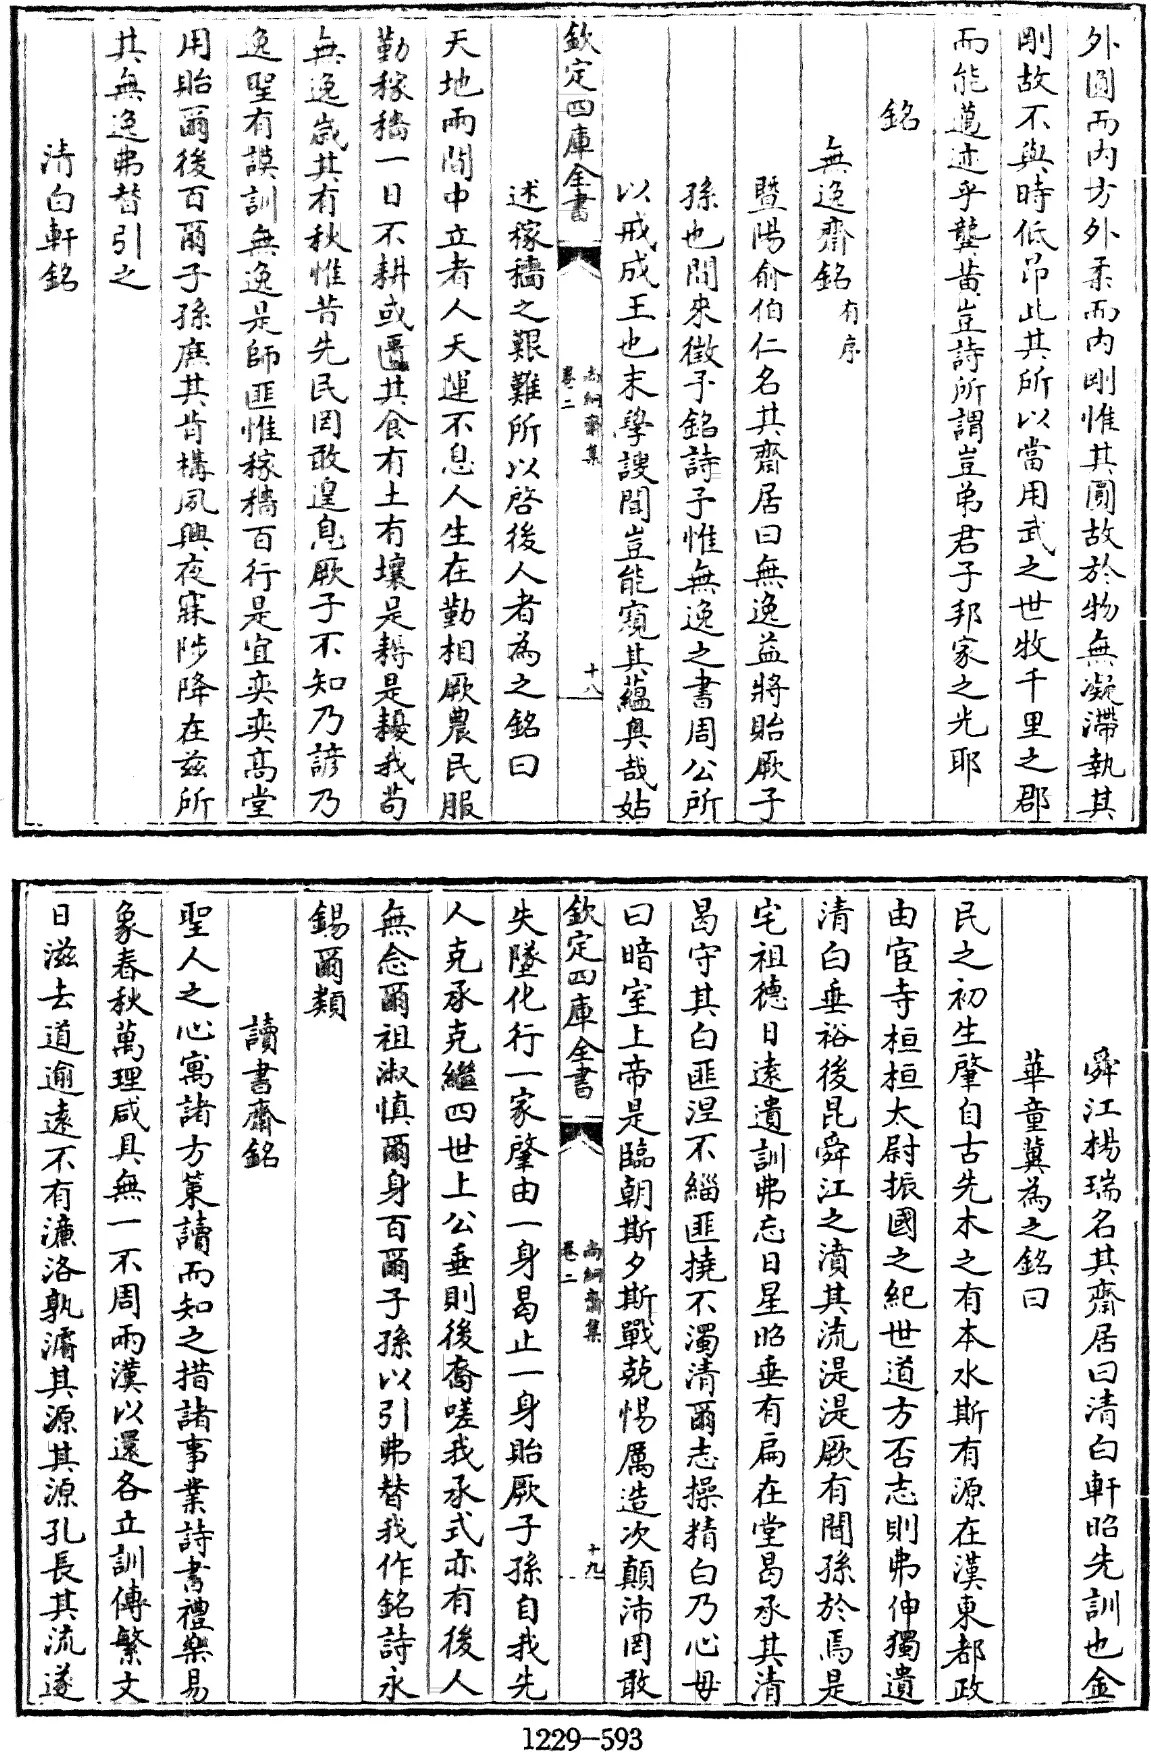 外圓而内方外柔而内剛惟其圓故於物無凝滯執其
剛故不與時低昂此其所以當用武之世牧千里之郡
而能邁迹乎龔黄豈詩所謂豈弟君子邦家之光耶
銘
無逸齋銘有序
暨陽俞伯仁名其齋居曰無逸益將貽厥子
孫也間來徵予銘詩予惟無逸之書周公所
以戒成王也末學謏聞豈能窺其蘊奥哉姑
欽定四庫全書
尚絅齋集
卷二
十八
述稼穡之艱難所以啓後人者為之銘曰
天地兩間中立者人天運不息人生在勤相厥農民服
勤稼穡一日不耕或匱其食有土有壤是耨是耰我苟
無逸嵗其有秋惟昔先民罔敢遑息厥子不知乃諺乃
逸聖有謨訓無逸是師匪惟稼穡百行是宜奕奕髙堂
用貽爾後百爾子孫庶其肯構夙興夜寐陟降在兹所
其無逸弗替引之
清白軒銘
舜江楊瑞名其齋居曰清白軒昭先訓也金
華童冀為之銘曰
民之初生肇自古先木之有本水斯有源在漢東都政
由宦寺桓桓太尉振國之紀世道方否志則弗伸獨遺
清白垂裕後昆舜江之濆其流湜湜厥有聞孫於焉是
宅祖德日遠遺訓弗忘日星昭垂有扁在堂曷承其清
曷守其白匪涅不緇匪撓不濁清爾志操精白乃心毋
曰暗室上帝是臨朝斯夕斯戰兢惕厲造次顛沛罔敢
欽定四庫全書
尚絅齋集
卷二
十九
失墜化行一家肇由一身曷止一身貽厥子孫自我先
人克承克繼四世上公垂則後裔嗟我承式亦有後人
無念爾祖淑慎爾身百爾子孫以引弗替我作銘詩永
錫爾類
讀書齋銘
聖人之心寓諸方䇿讀而知之措諸事業詩書禮樂易
象春秋萬理咸具無一不周兩漢以還各立訓傳繁文
日滋去道逾遠不有濂洛孰濬其源其源孔長其流遂
1229-593